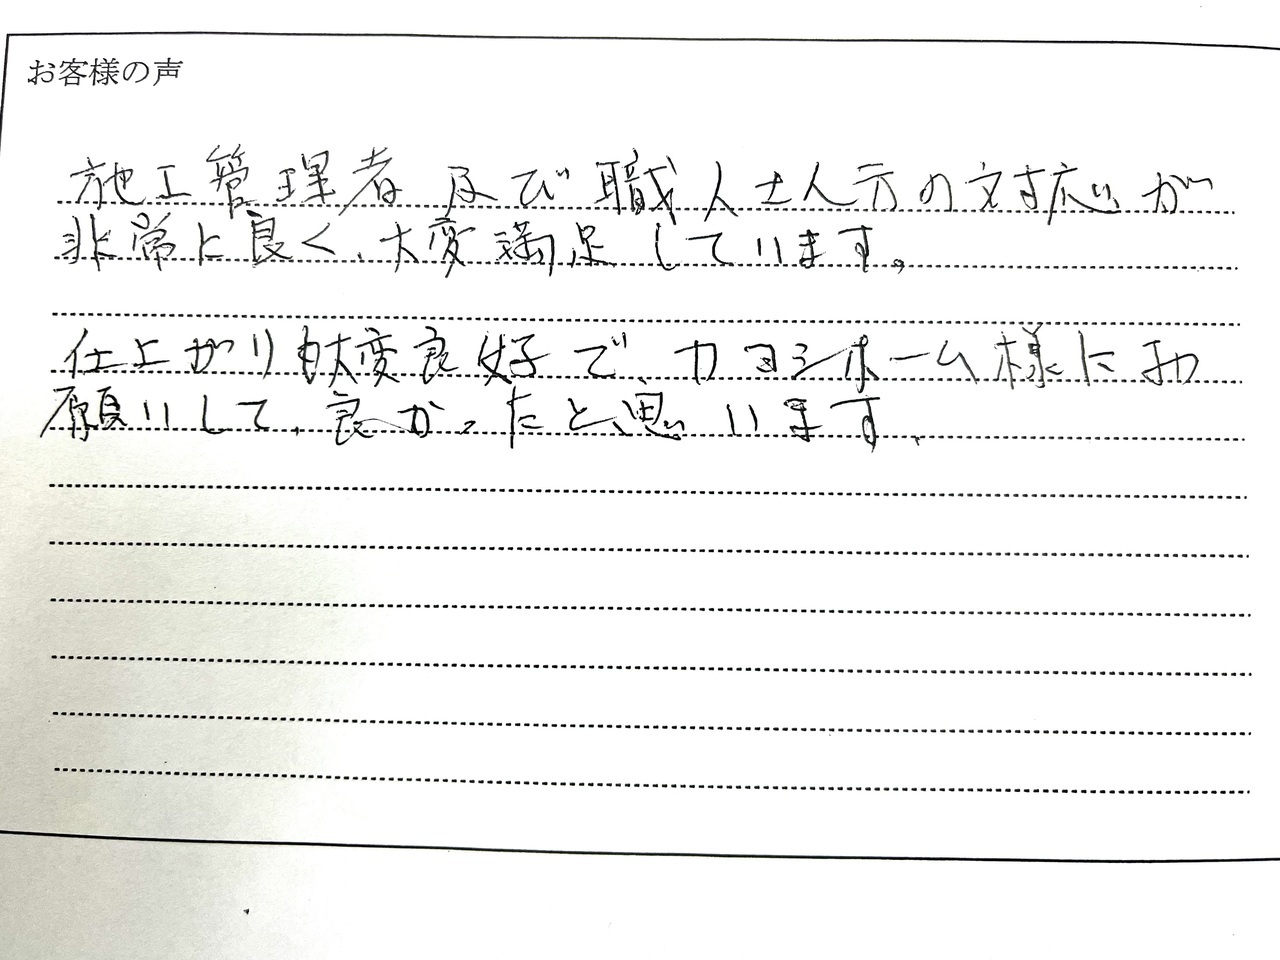 お客様の声
施工管理者及び職人さん方の対応が
非常に良く、大変満足しています。
仕上がりも大変良好で、カヨシホーム様にお
願いして、良かったと思います。